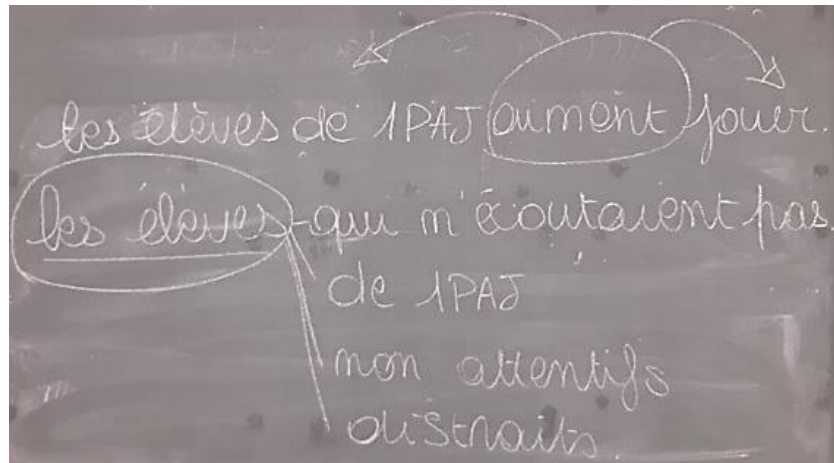 les élèves de 1PAJ aiment jouer.
les élèves qui n'écoutaient pas.
de 1PAJ
non attentifs
distraits.